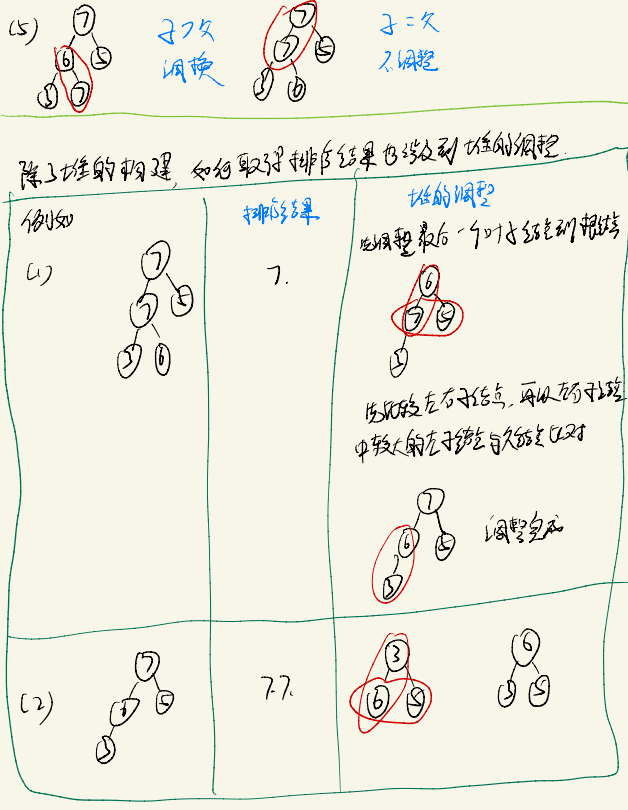 (5) 7 6 5 3 7 子>父 调换 7 7 5 3 6 子=父 不调整
除了堆的构建，如何取得排序结果也涉及到堆的调整.
例如 排序结果 堆的调整
先调整最后一个叶子结点到根结点
(1) 7 7 5 3 6
7.
6 7 5 3
先比较左右子结点，再以左右子结点
中较大的左子结点与父结点比对
7 6 5 3 调整完成
(2) 7 6 5 3
7.7.
3 6 5
6 3 5